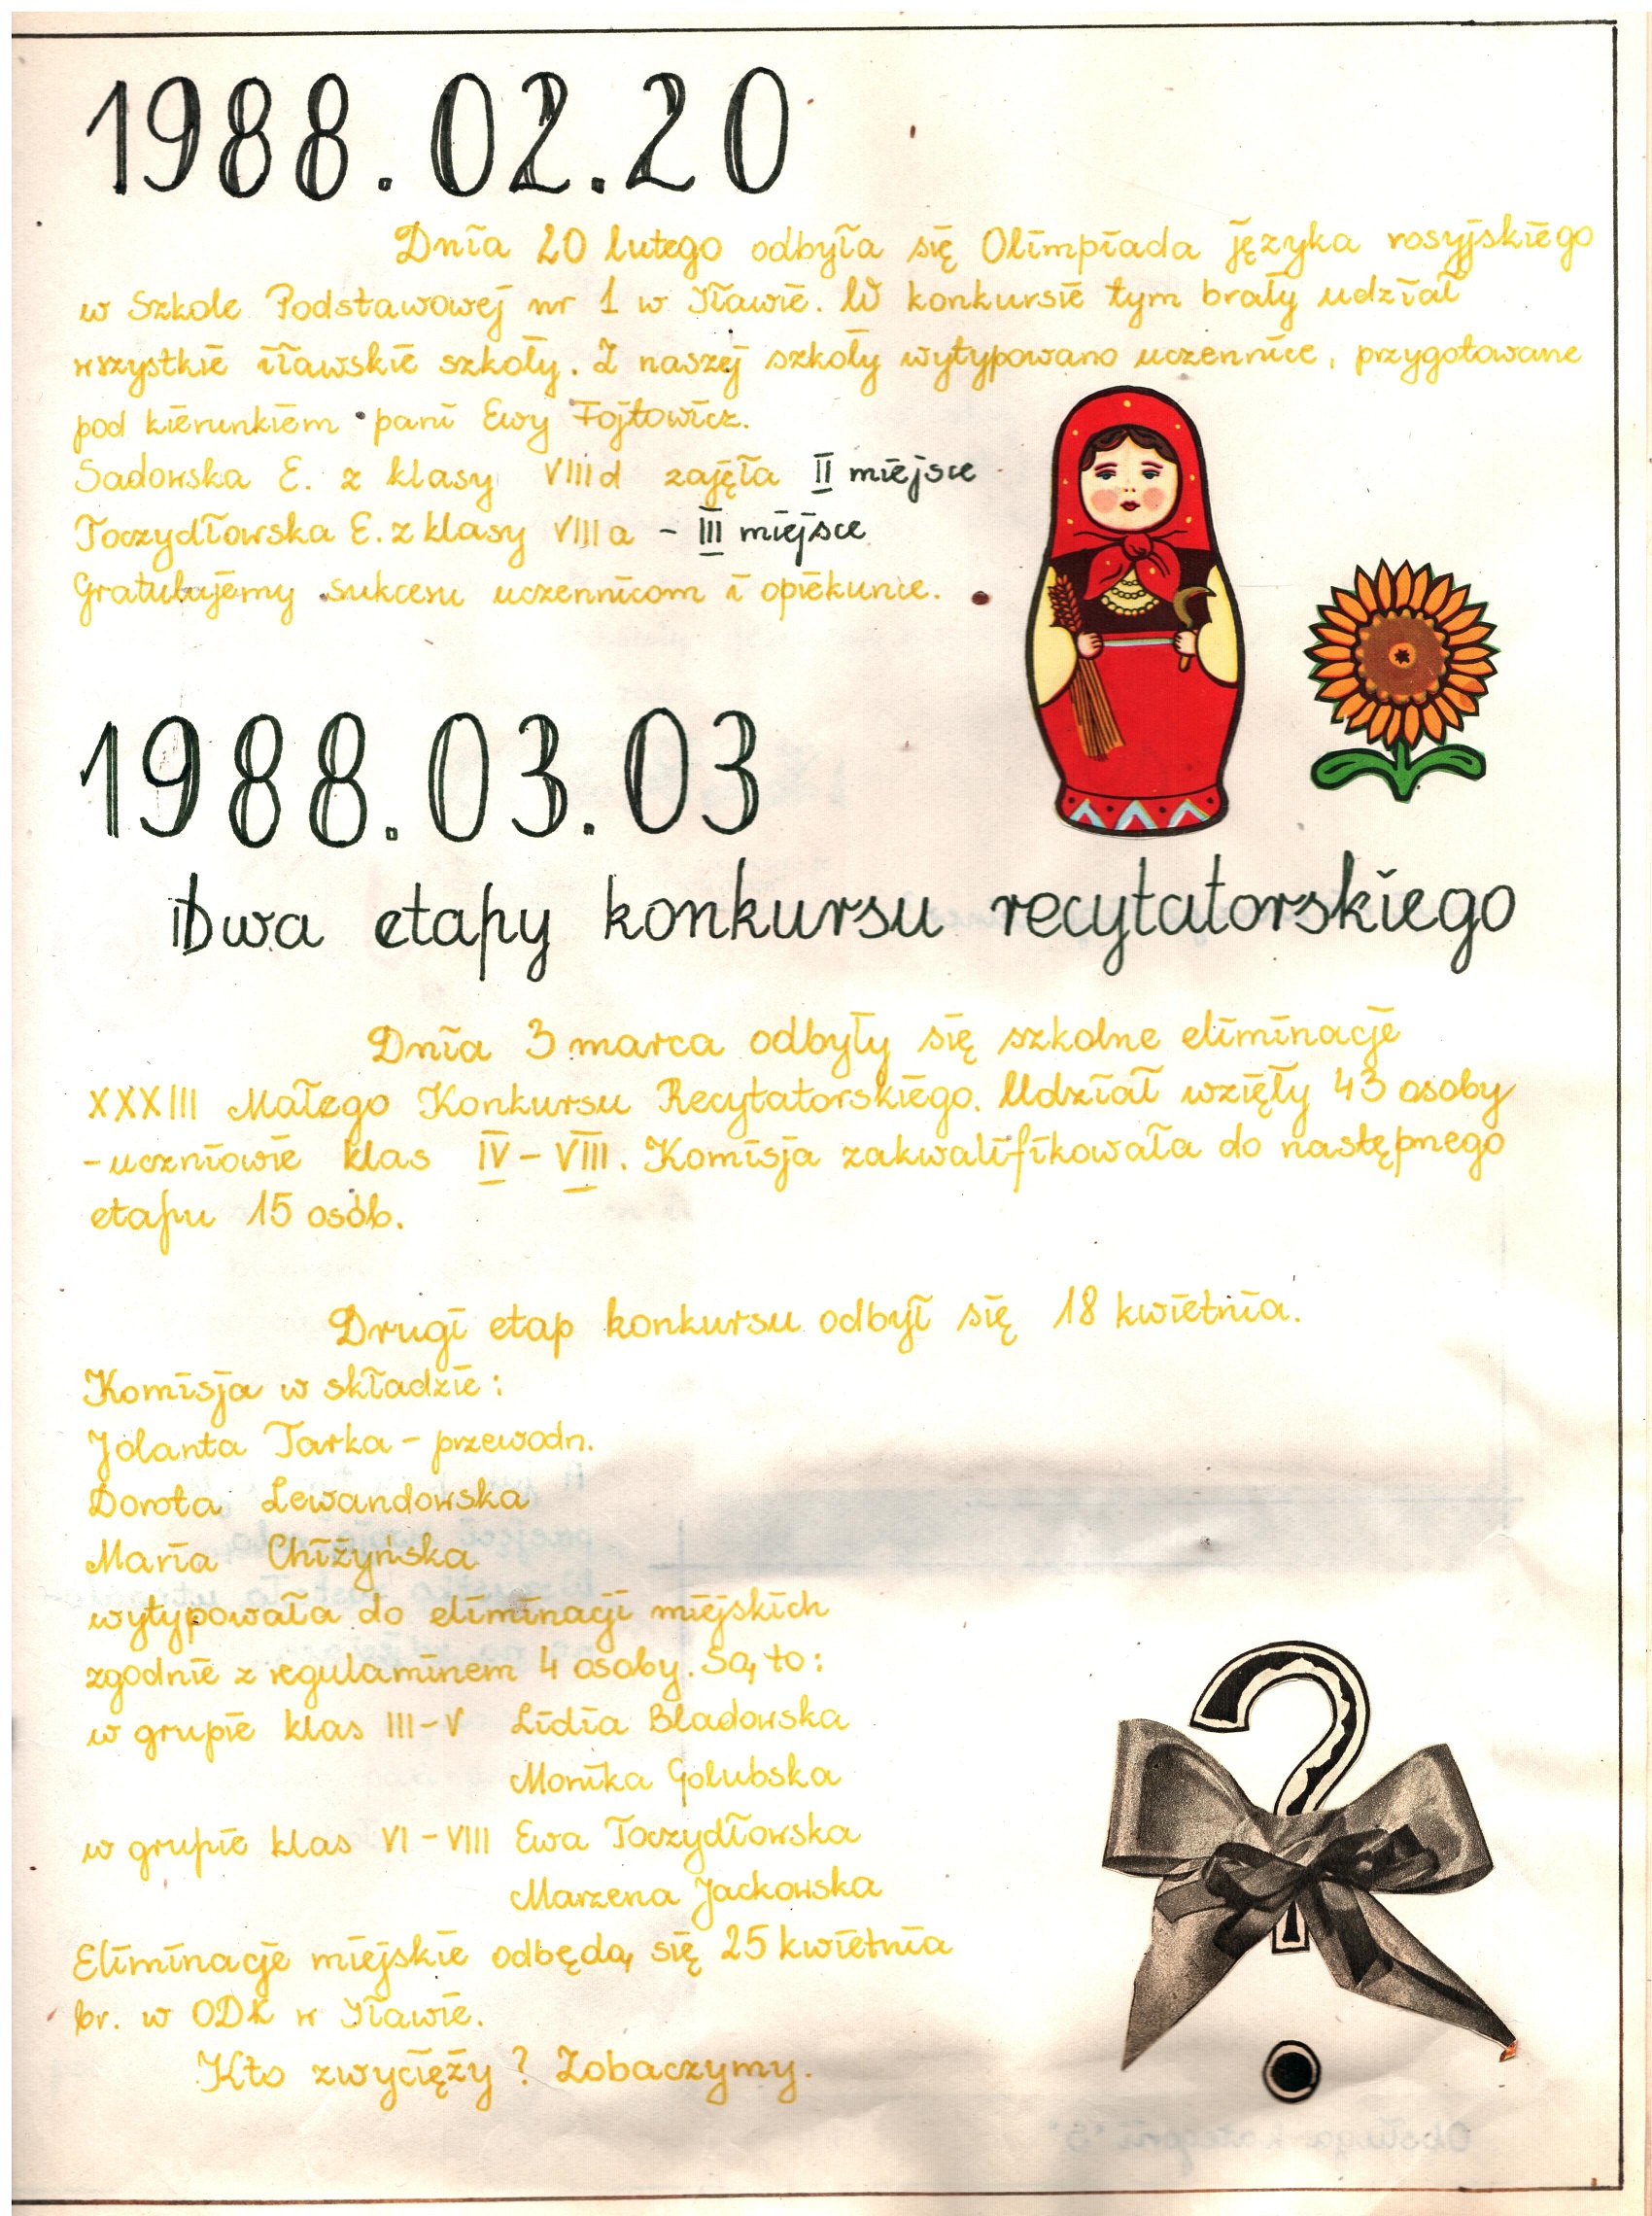 1988.02.20
Dnia 20 lutego odbyła się Olimpiada języka rosyjskiego
w Szkole Podstawowej nr 1 w Iławie. W konkursie tym brały udział
wszystkie iławskie szkoły. Z naszej szkoły wytypowano uczennice, przygotowane
pod kierunkiem pani Ewy Fojtowicz.
Sadowska E. z klasy VIIId zajęła II miejsce
Toczydłowska E. z klasy VIIIa - III miejsce
Gratulujemy sukcesu uczennicom i opiekunce.
1988.03.03
Dwa etapy konkursu recytatorskiego
Dnia 3 marca odbyły się szkolne eliminacje
XXXIII Małego Konkursu Recytatorskiego. Udział wzięły 43 osoby
- uczniowie klas IV - VIII. Komisja zakwalifikowała do następnego
etapu 15 osób.
Drugi etap konkursu odbył się 18 kwietnia.
Komisja w składzie:
Jolanta Tarka - przewodn.
Dorota Lewandowska
Maria Chiżyńska
wytypowała do eliminacji miejskich
zgodnie z regulaminem 4 osoby. Są to:
w grupie klas III-V Lidia Bladowska
Monika Golubska
w grupie klas VI-VIII Ewa Toczydłowska
Marzena Jackowska
Eliminacje miejskie odbędą się 25 kwietnia
br. w ODK w Iławie.
Kto zwycięży? Zobaczymy.
?